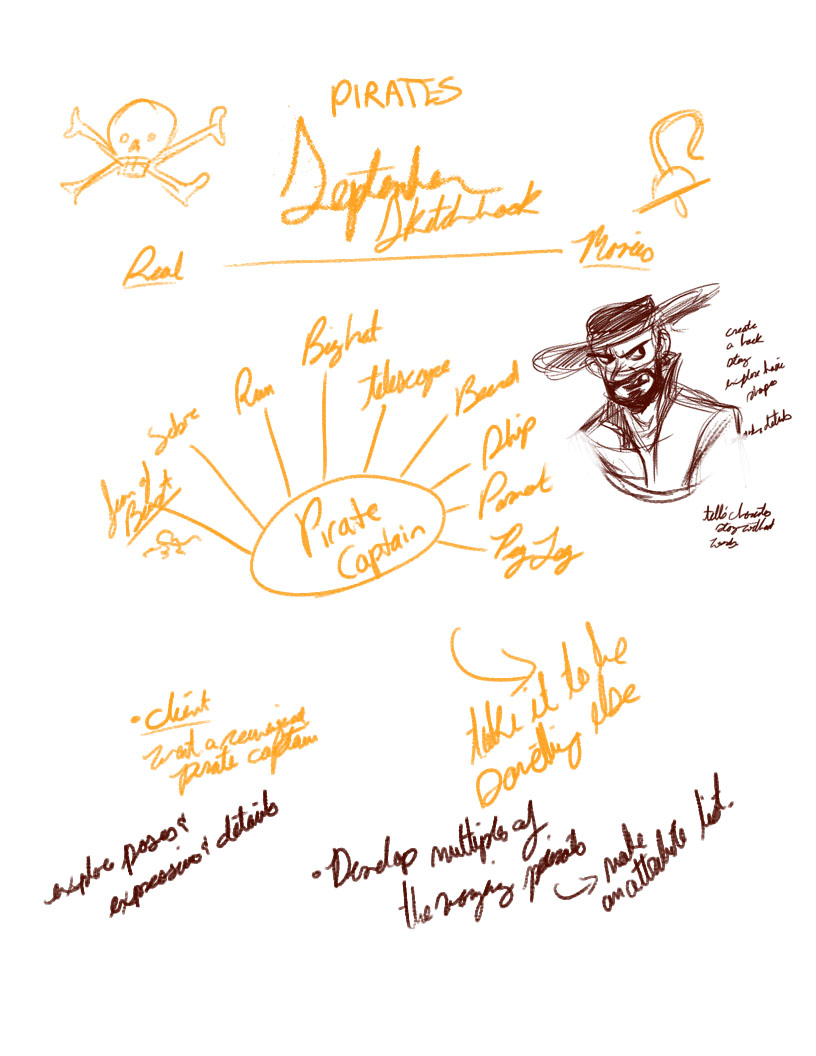 PIRATES
September
Sketchbook
Real
Movies
Big hat
telescope
Rum
Beard
Sabre
Ship
Parrot
Peg Leg
Pirate
Captain
create
a back
story
explore basic
shapes
details
tells characters
story without
words
• client
want a
pirate captain
take it to be
something else
explore poses &
expressions & details
• Develop multiples of
the
make
an attribute list.